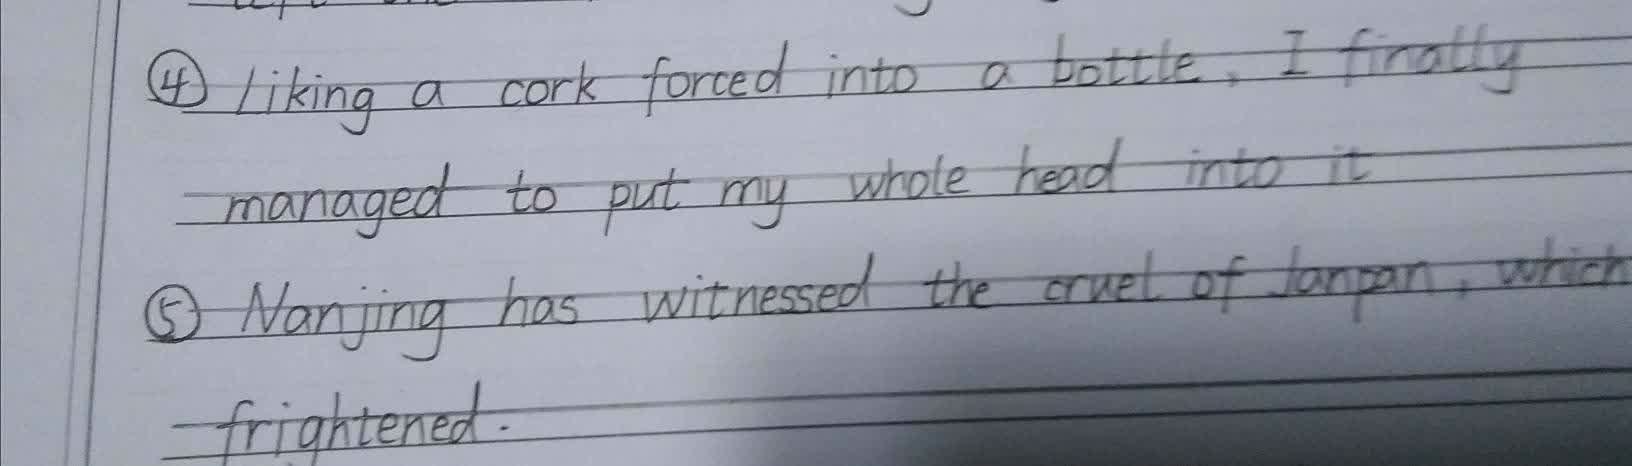 ④ Liking a cork forced into a bottle, I finally
managed to put my whole head into it
⑤ Nanjing has witnessed the cruel of Janpan, which
frightened.